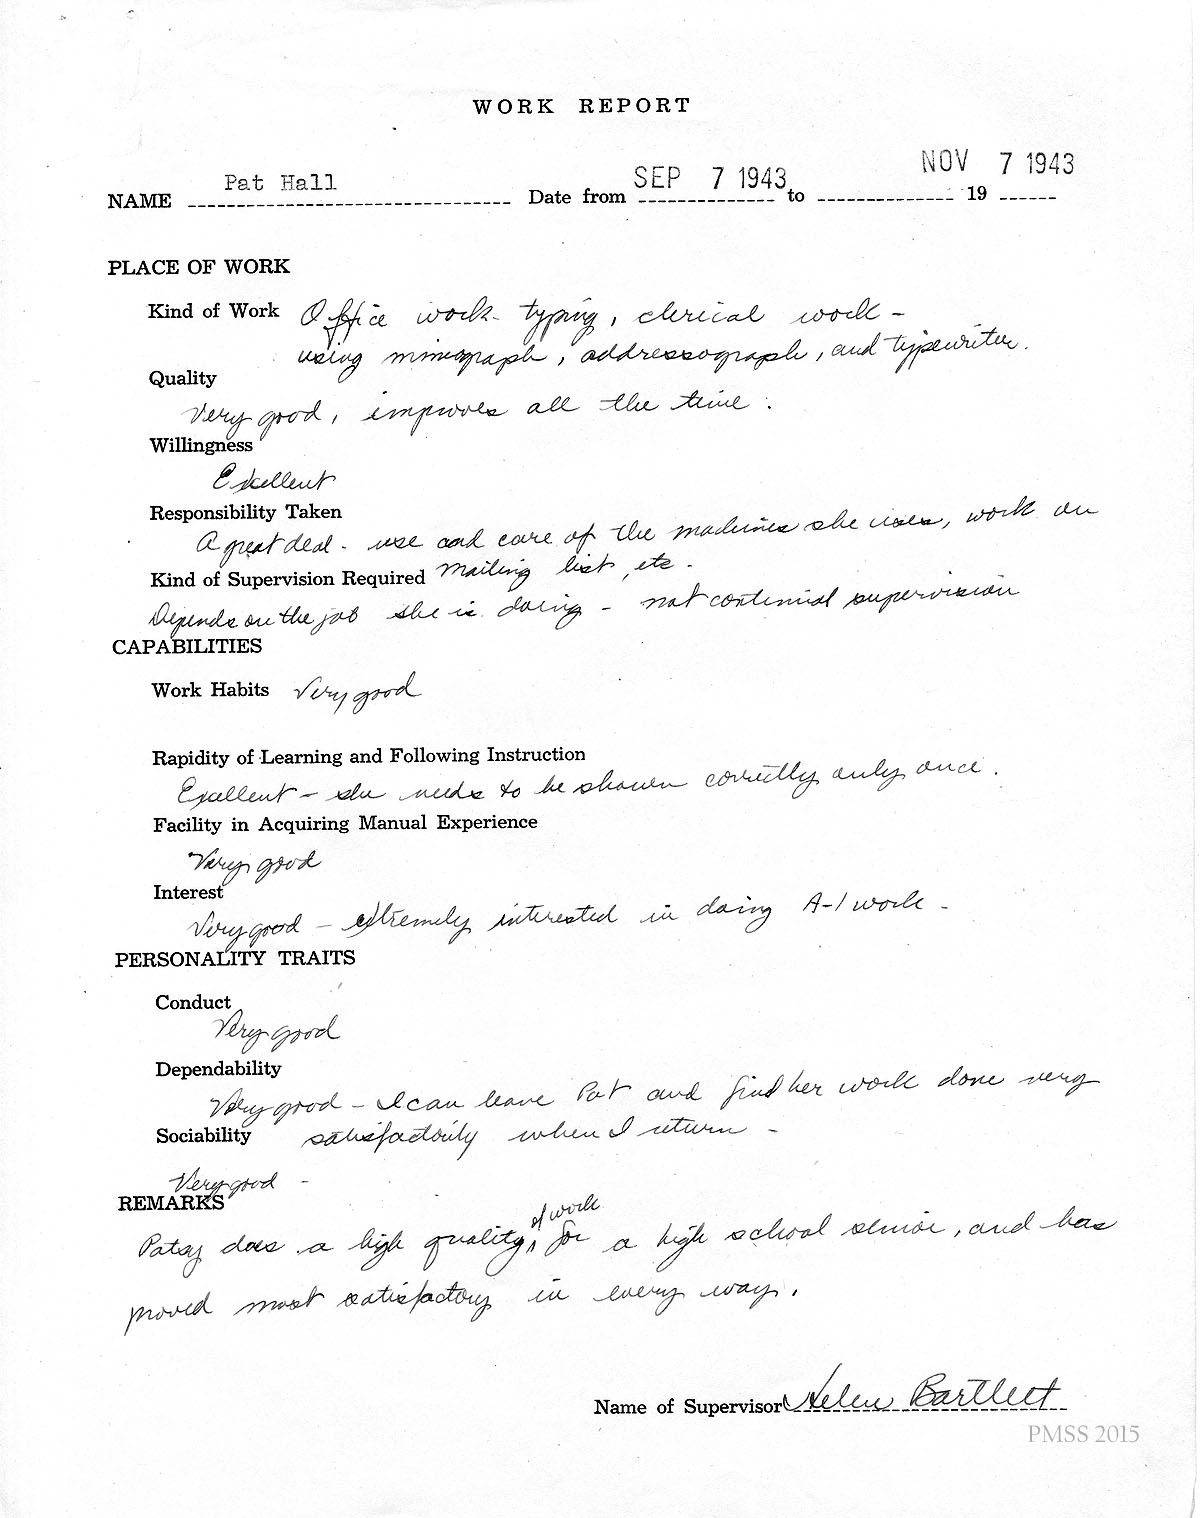 WORK REPORT
NAME Pat Hall Date from SEP 7 1943 to NOV 7 1943 19
PLACE OF WORK
Kind of Work Office work - typing, clerical work -
using mimograph, addressograph, and typewriter.
Quality
Very good, improves all the time.
Willingness
Exellent
Responsibility Taken
A great deal - use and care of the machines she uses, work on
mailing list, etc -
Kind of Supervision Required
Depends on the job she is doing - not continual supervision
CAPABILITIES
Work Habits Very good
Rapidity of Learning and Following Instruction
Exellent - she needs to be shown correctly only once.
Facility in Acquiring Manual Experience
Very good
Interest
Very good - extremely interested in doing A-1 work -
PERSONALITY TRAITS
Conduct
Very good
Dependability
Very good - I can leave Pat and find her work done very
satisfactorily when I return -
Sociability
Very good -
REMARKS
Patsy does a high quality of work for a high school senior, and has
proved most satisfactory in every way.
Name of Supervisor Helen Bartlett
PMSS 2015